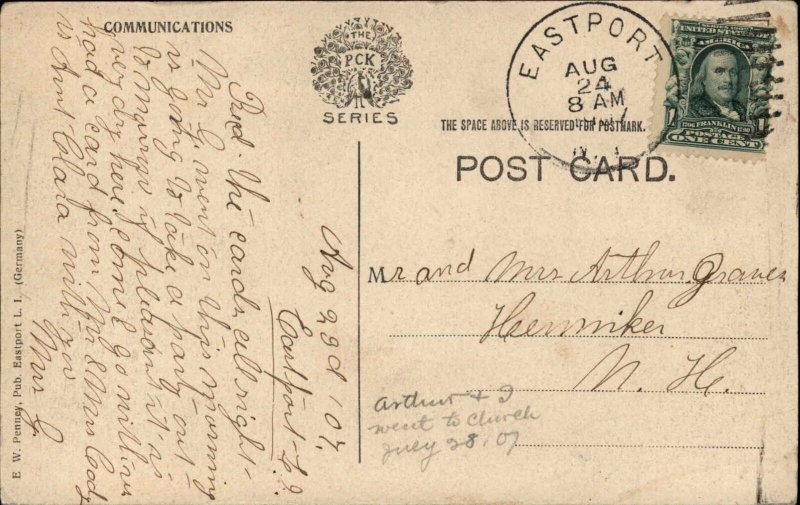 COMMUNICATIONS
THE
PCK
SERIES
EASTPORT
AUG
24
8 AM
N.Y.
UNITED STATES OF
AMERICA
1706 FRANKLIN 1790
POSTAGE
ONE CENT
THE SPACE ABOVE IS RESERVED FOR POSTMARK.
POST CARD.
Aug 23d 07,
Eastport L.I.
Recd. the cards all right-
Mr G. went on this morning
is going to take a party out
to morrow if pleasant it is
very dry here, come & go with us
had a card from Mr & Mrs Cody
is Aunt Clara with you
Mrs G.
Mr and Mrs Arthur Graves
Henniker
N. H.
Arthur & I
went to church
July 28, 07
E. W. Penney, Pub. Eastport L. I. (Germany)